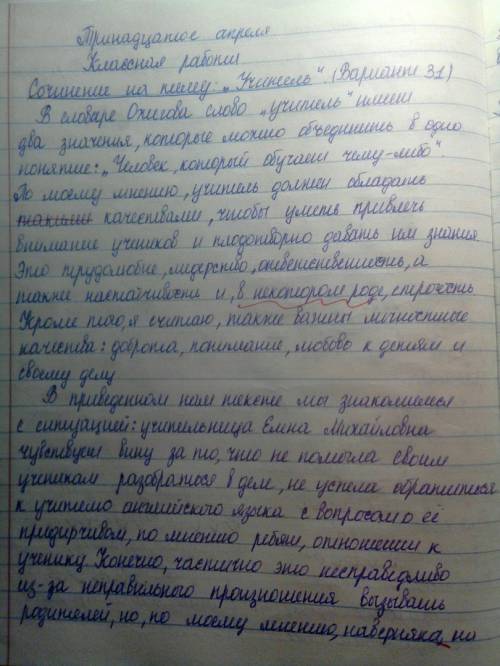 Тринадцатое апреля
Классная работа
Сочинение на тему: „Учитель". (Вариант 31)
В словаре Ожегова слово „учитель" имеет
два значения, которые можно объединить в одно
понятие: „Человек, который обучает чему-либо".
По моему мнению, учитель должен обладать
такими качествами, чтобы уметь привлечь
внимание учеников и плодотворно давать им знания.
Это трудолюбие, лидерство, ответственность, а
также настойчивость и, в некотором роде, строгость
Кроме того, я считаю, также важны личностные
качества: доброта, понимание, любовь к детям и
своему делу
В приведенном нам тексте мы знакомимся
с ситуацией: учительница Елена Михайловна
чувствует вину за то, что не помогла своим
ученикам разобраться в деле, не успела обратиться
к учителю английского языка с вопросом о её
придирчивом, по мнению ребят, отношении к
ученику. Конечно, частично это несправедливо
из-за неправильного произношения вызывать
родителей, но, по моему мнению, наверняка, на